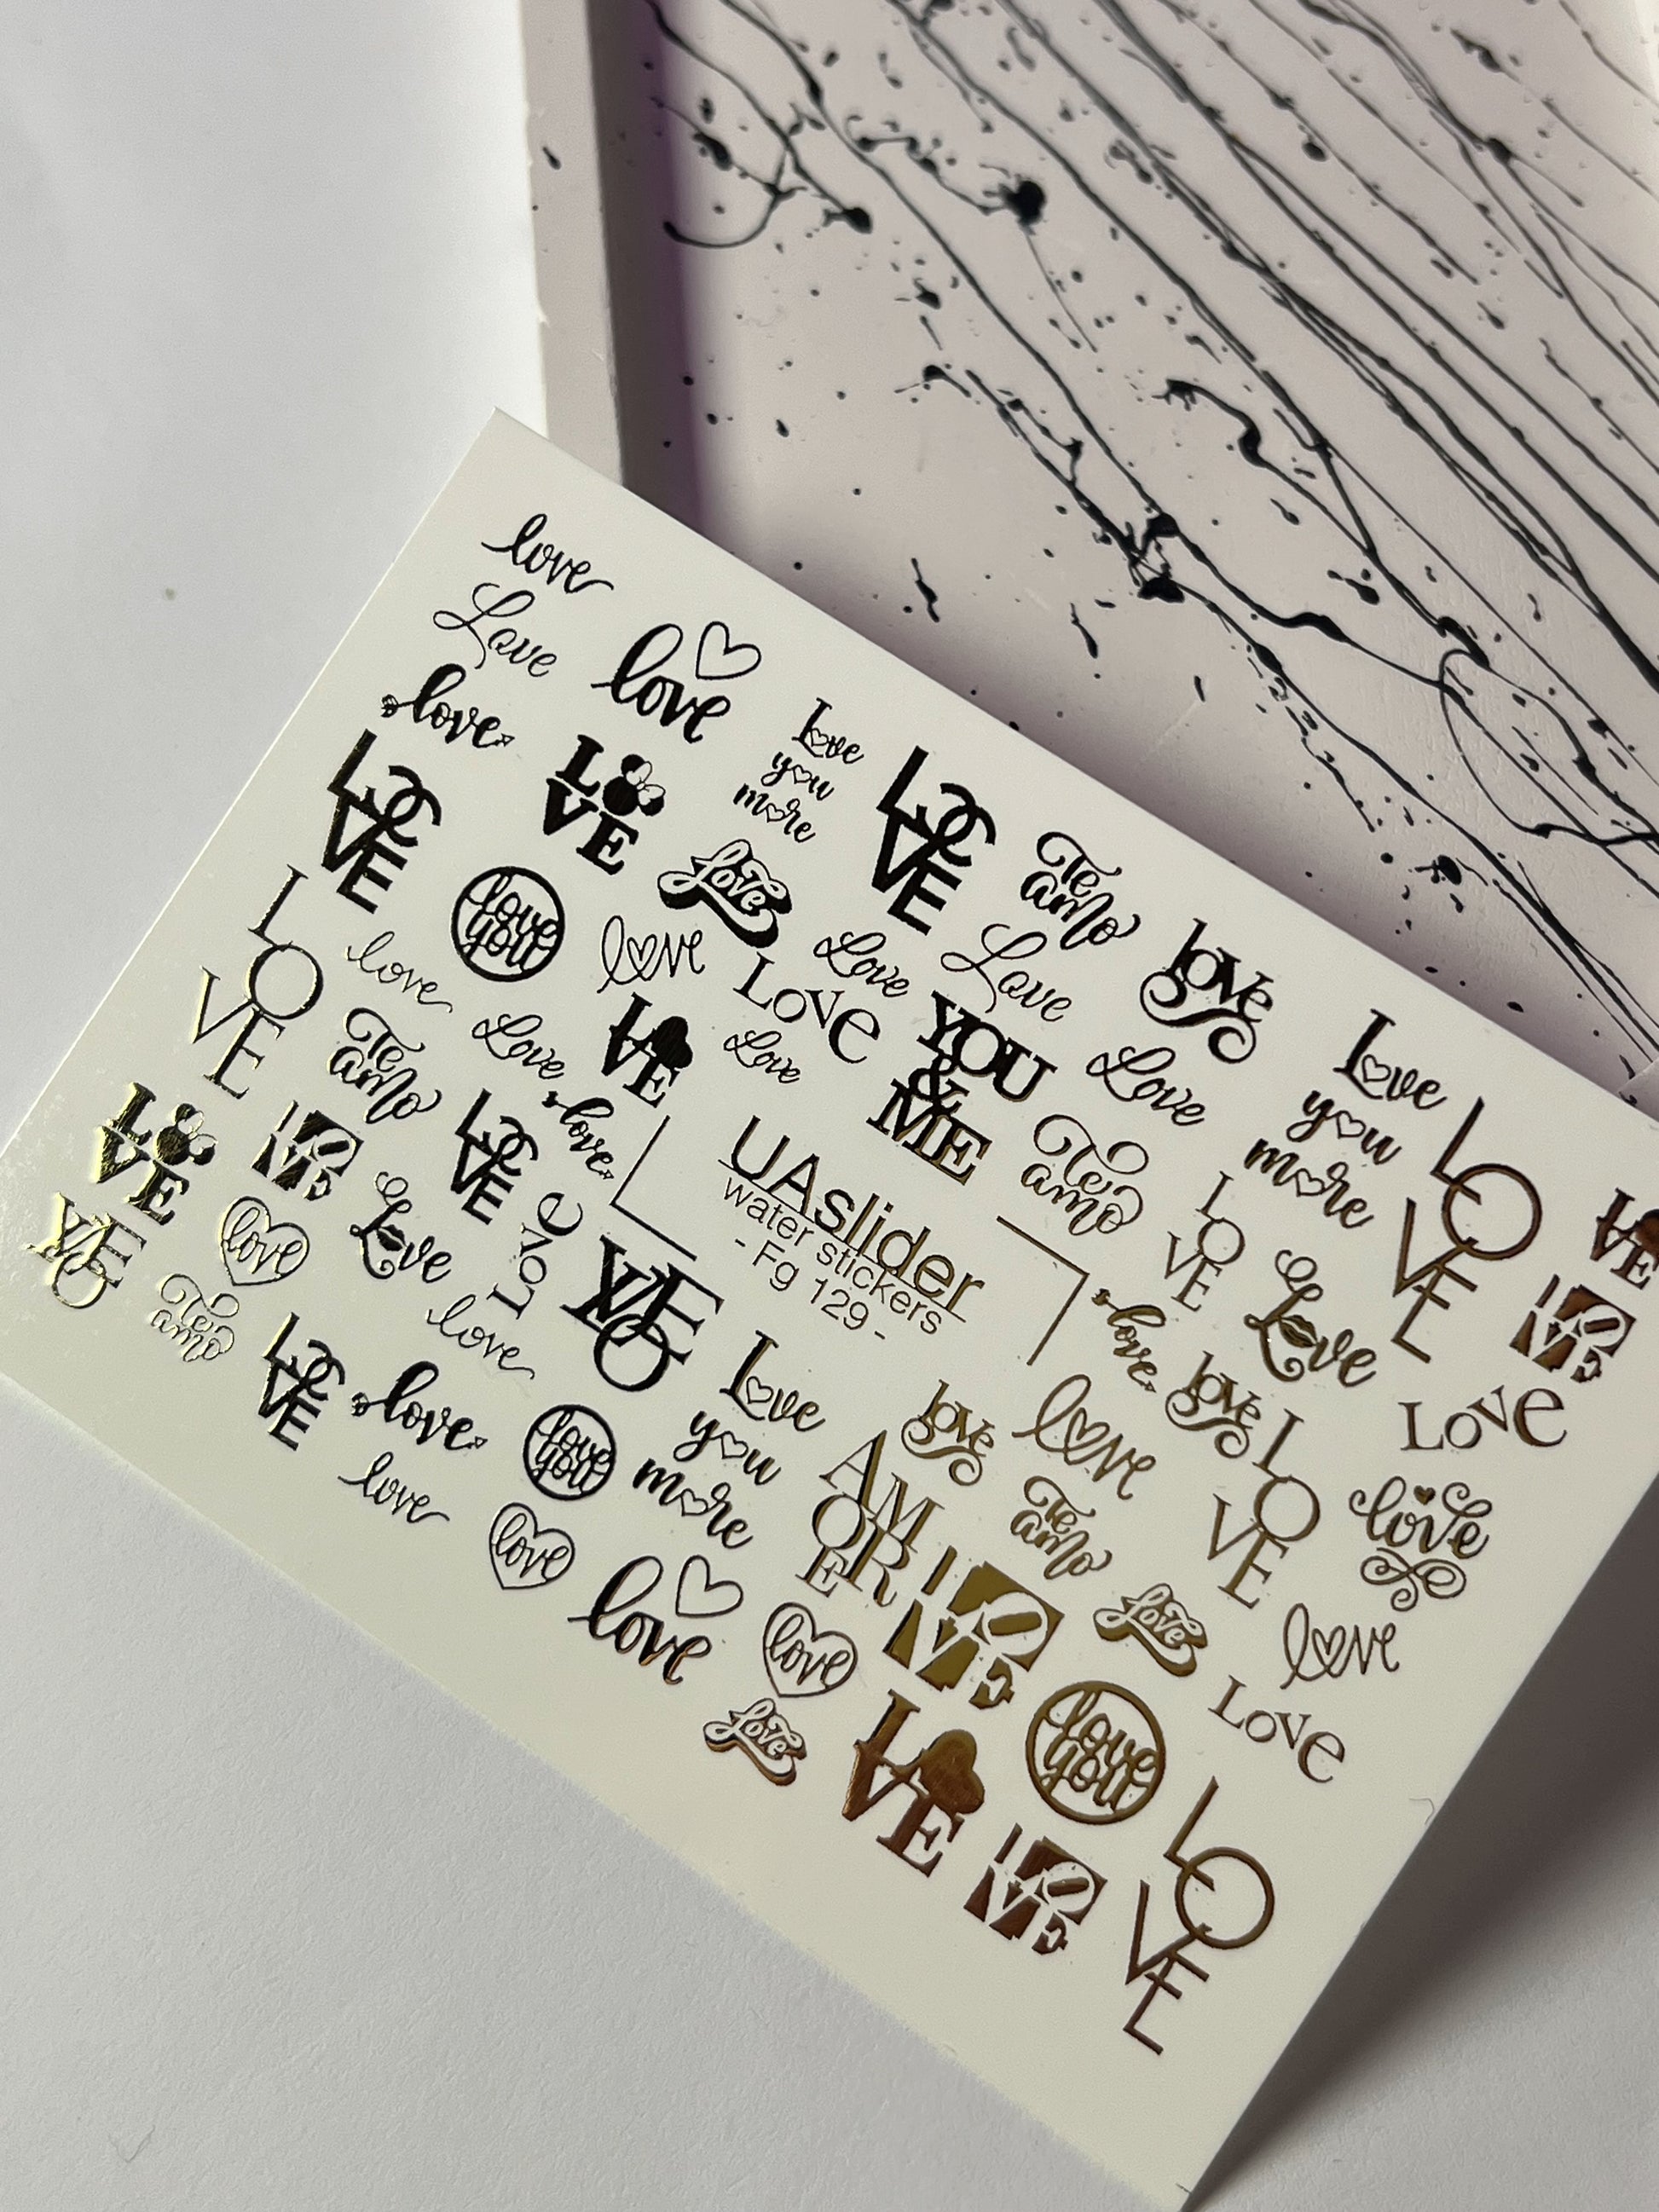 love
Love
love
love
LOVE
LOVE
Love
you
more
LOVE
Te
amo
love
Love
you
more
LOVE
LOVE
LOVE
love
you
Love
love
Love
Love
LOVE
love
Love
LOVE
Love
YOU
&
ME
Love
Te
amo
LOVE
Te
amo
LOVE
love
UAslider
water stickers
- Fg 129 -
LOVE
LOVE
Love
LOVE
LOVE
love
Love
LOVE
love
LOVE
love
love
LOVE
love
Te
amo
LOVE
love
love
you
Love
you
more
love
love
LOVE
love
AMORE
Te
amo
love
love
love
love
love
LOVE
love
LOVE
love
LOVE
love
you
LOVE
LOVE